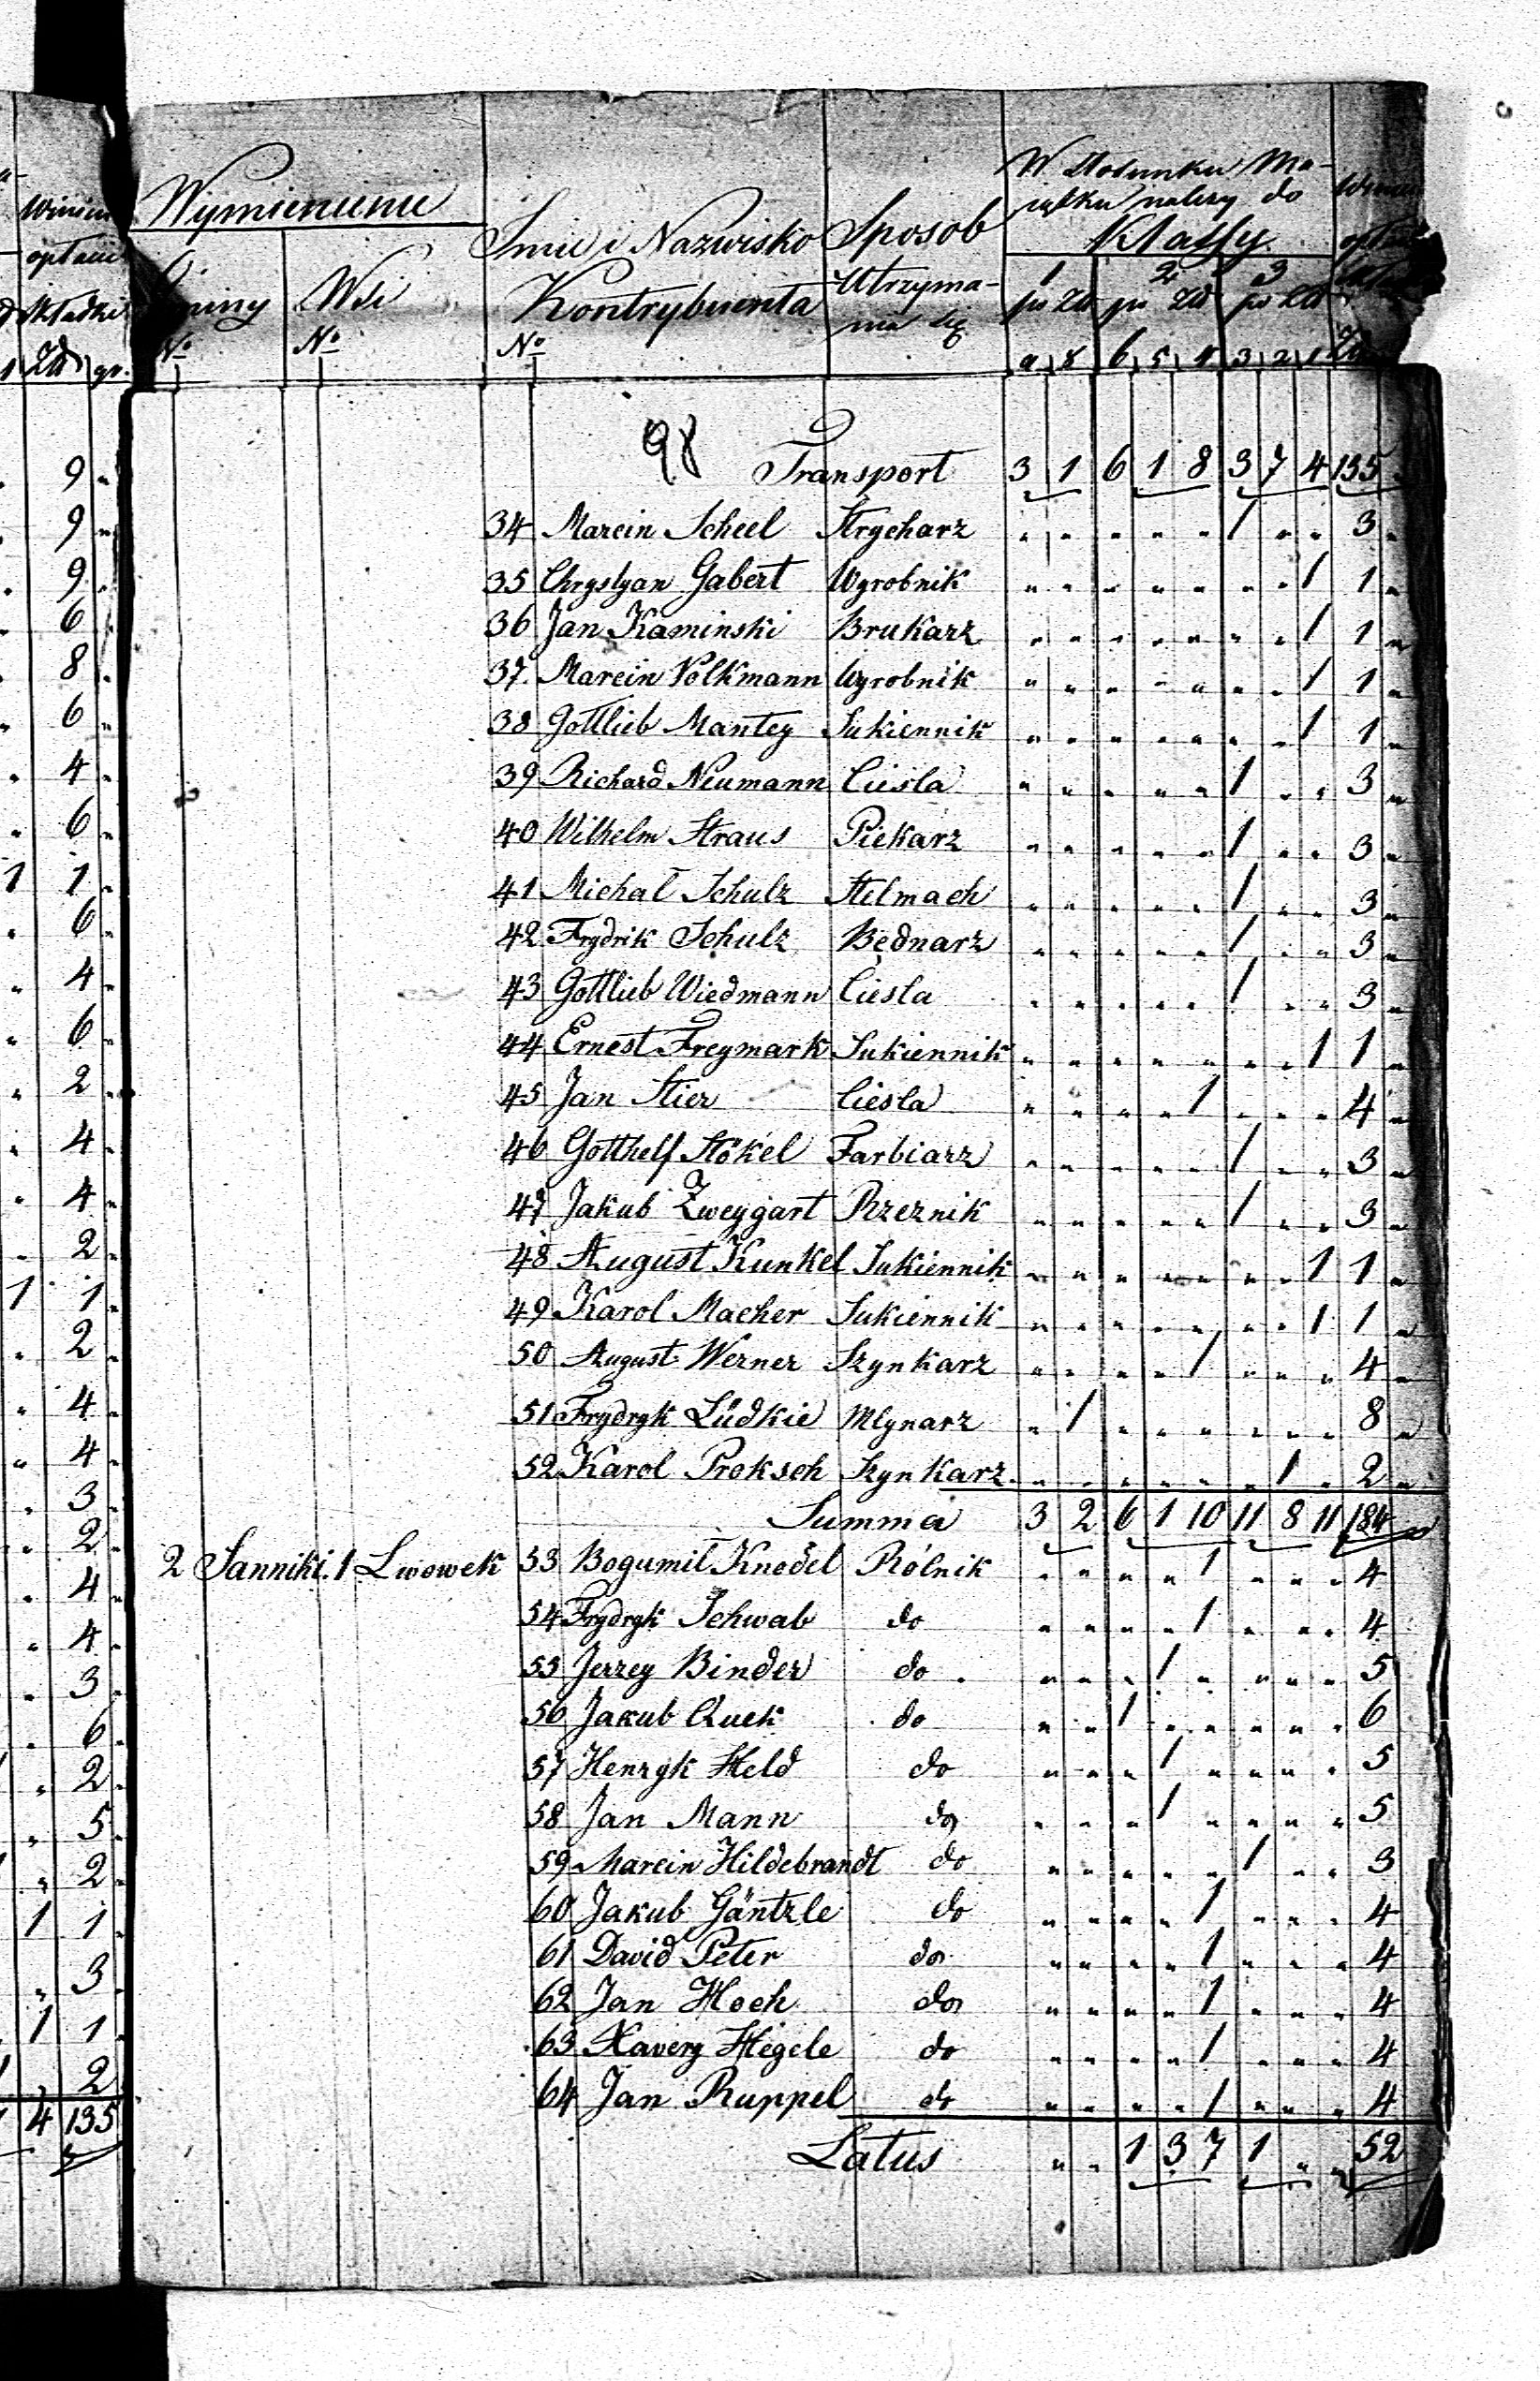 Winien
opłacić
składki
Zł gr.
9 "
9 "
9 "
6 "
8 "
6 "
4 "
6 "
1 1 "
6 "
4 "
6 "
2 "
4 "
4 "
2 "
1 1 "
2 "
4 "
4 "
3 "
2 "
4 "
4 "
3 "
6 "
2 "
5 "
2 "
1 1 "
3 "
1 1 "
2
4 135
Wymienienie
Gminy Wsi
No No
Imie i Nazwisko
Kontrybuenta
No
Sposob
Utrzyma-
nia się
W Stosunku Ma-
iątku należy do
Klassy
1 2 3
po Zł po Zł po Zł
9 8 6 5 4 3 2 1 Zł
98
Transport 3 1 6 1 8 3 7 4 135
34 Marcin Scheel Strycharz " " " " " 1 " " 3 "
35 Chrystyan Gabert Wyrobnik " " " " " " " 1 1 "
36 Jan Kaminski Brukarz " " " " " " " 1 1 "
37. Marcin Volkmann Wyrobnik " " " " " " " 1 1 "
38 Gottlieb Mantey Sukiennik " " " " " " " 1 1 "
39 Richard Neumann Ciesla " " " " " 1 " " 3 "
40 Wilhelm Straus Piekarz " " " " " 1 " " 3 "
41 Michał Schulz Stelmach " " " " " 1 " " 3 "
42 Frydrik Schulz Bednarz " " " " " 1 " " 3 "
43 Gottlieb Wiedmann Ciesla " " " " " 1 " " 3 "
44 Ernest Freymark Sukiennik " " " " " " " 1 1 "
45 Jan Stier Ciesla " " " " 1 " " " 4 "
46 Gotthelf Stökel Farbiarz " " " " " 1 " " 3 "
47 Jakub Zweygart Rzeznik " " " " " 1 " " 3 "
48 August Kunkel Sukiennik " " " " " " " 1 1 "
49 Karol Macher Sukiennik " " " " " " " 1 1 "
50 August Werner Szynkarz " " " " 1 " " " 4 "
51 Frydryk Lüdkie Młynarz " 1 " " " " " " 8 "
52 Karol Proksch Szynkarz " " " " " " 1 " 2 "
Summa 3 2 6 1 10 11 8 11 184
2 Sanniki. 1 Lwowek 53 Bogumił Knodel Rólnik " " " " 1 " " " 4
54 Frydryk Schwab do " " " " 1 " " " 4
55 Jerzey Binder do " " " 1 " " " " 5
56 Jakub Quek do " " 1 " " " " " 6
57 Henryk Held do " " " 1 " " " " 5
58 Jan Mann do " " " 1 " " " " 5
59 Marcin Hildebrandt do " " " " " 1 " " 3
60 Jakub Gäntzle do " " " " 1 " " " 4
61 David Peter do " " " " 1 " " " 4
62 Jan Hoch do " " " " 1 " " " 4
63 Xavery Hegele do " " " " 1 " " " 4
64 Jan Ruppel do " " " " 1 " " " 4
Latus " " 1 3 7 1 " " 52